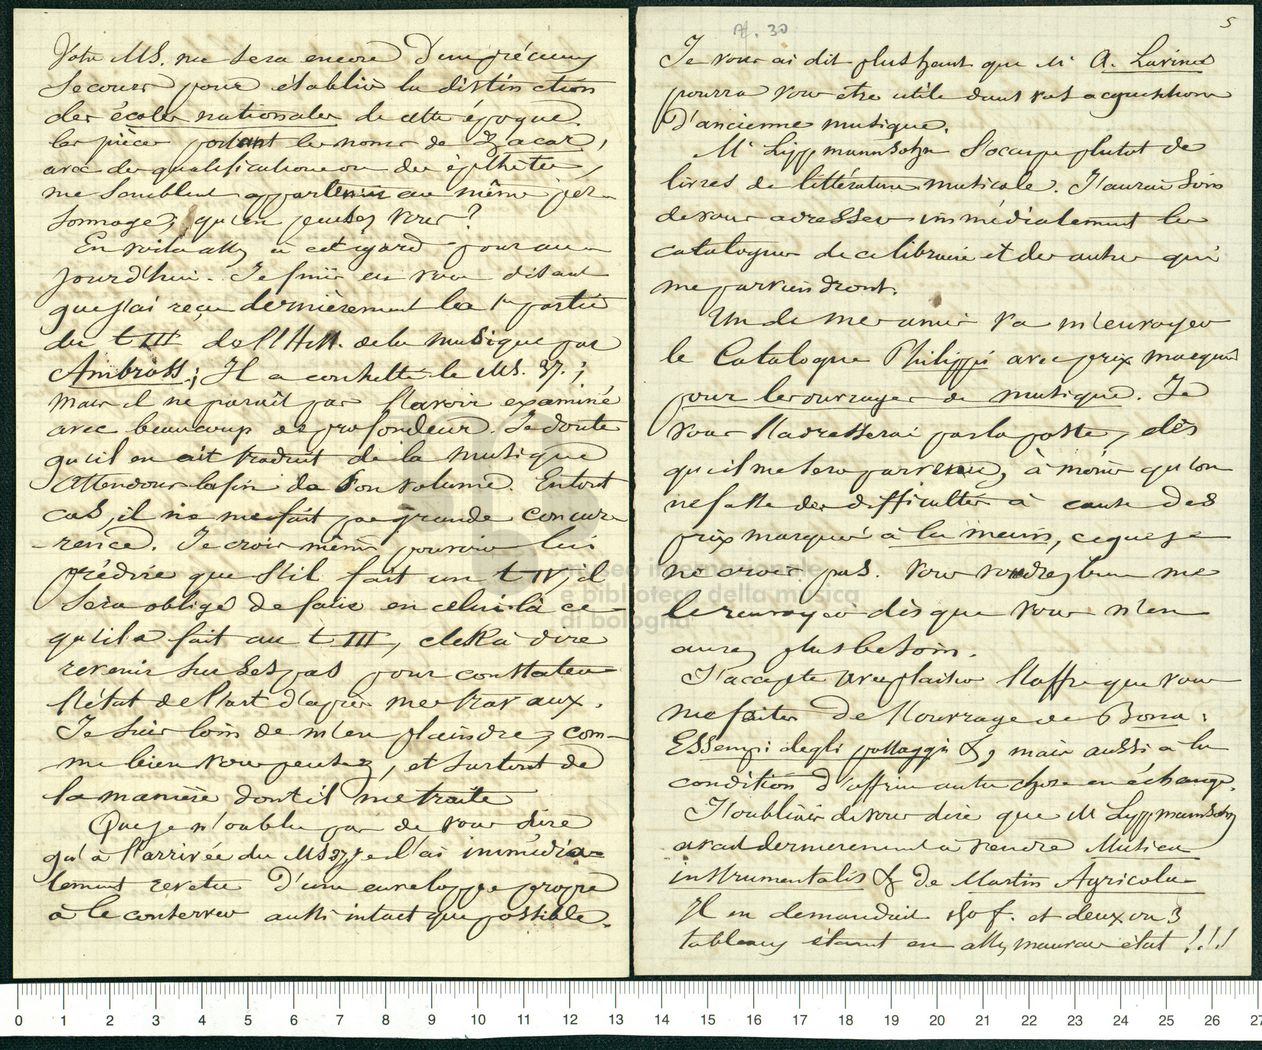 Votre MS. me sera encore d'un précieux
secours pour établir la distinction
des écoles nationales de cette époque.
les pièces portant les noms de Zacar,
avec des qualifications ou des épithètes,
me semblent appartenir au même per-
sonnage; qu'en pensez vous?
En voilà assez à cet égard pour au-
jourd'hui. Je finis en vous disant
que j'ai reçu dernièrement la 1re partie
du t III de l'Hist. de la musique par
Ambross; Il a consulté le MS. 37;
mais il ne paraît pas l'avoir examiné
avec beaucoup de profondeur. Je doute
qu'il en ait traduit de la musique
Attendons la fin de son volume. En tout
cas, il ne me fait pas grande concur-
rence. Je crois même pouvoir lui
prédire que s'il fait un t IV, il
sera obligé de faire en celui-là ce
qu'il a fait au t III, c'est à dire
revenir sur ses pas pour constater
l'état de l'art d'après mes travaux.
Je suis loin de m'en plaindre, com-
me bien vous pensez, et surtout de
la manière dont il me traite
Que je n'oublie pas de vous dire
qu'à l'arrivée du MS 37 je l'ai immédia-
tement revetu d'une enveloppe propre
à le conserver aussi intact que possible.
R. 30
5
Je vous ai dit plus haut que Mr A. Lavinée
pourra vous être utile dans vos acquisitions
d'ancienne musique.
Mr Lippmannsohn s'occupe plutot de
livres de littérature musicale. J'aurai soin
de vous adresser immédiatement les
catalogues de ce libraire et des autres qui
me parviendront.
Un de mes amis va m'envoyer
le Catalogue Philippi avec prix marqués
pour les ouvrages de musique. Je
vous l'adresserai par la poste, dès
qu'il me sera parvenu, à moins qu'on
ne fasse des difficultés à cause des
prix marqués à la main, ce que je
ne crois pas. Vous voudrez bien me
le renvoyer dès que vous n'en
aurez plus besoin.
J'accepte avec plaisir l'offre que vous
me faites de l'ouvrage de Bona:
Essempi degli passaggi &, mais aussi à la
condition d'offrir autre chose en échange.
J'oubliais de vous dire que M Lippmannsohn
avait dernierement à vendre Musica
instrumentalis & de Martin Agricola
Il en demandait 150 f. et deux ou 3
tableaux étaient en assez mauvais état !!!
museo internazionale
e biblioteca della musica
di bologna
0 1 2 3 4 5 6 7 8 9 10 11 12 13 14 15 16 17 18 19 20 21 22 23 24 25 26 27